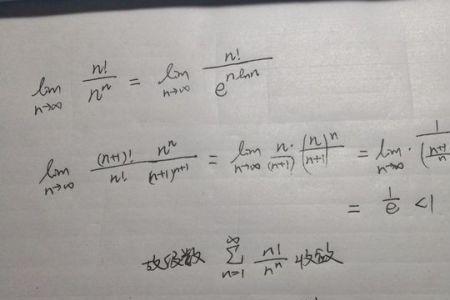 lim n→∞ n!/n^n = lim n→∞ n!/e^(n ln n)
lim n→∞ (n+1)!/n! n^n/(n+1)^(n+1) = lim n→∞ n·/(n+1) (n/(n+1))^n = lim n→∞ · 1/((n+1)/n
= 1/e <1
故级数 ∑ n=1 ∞ n!/n^n 收敛